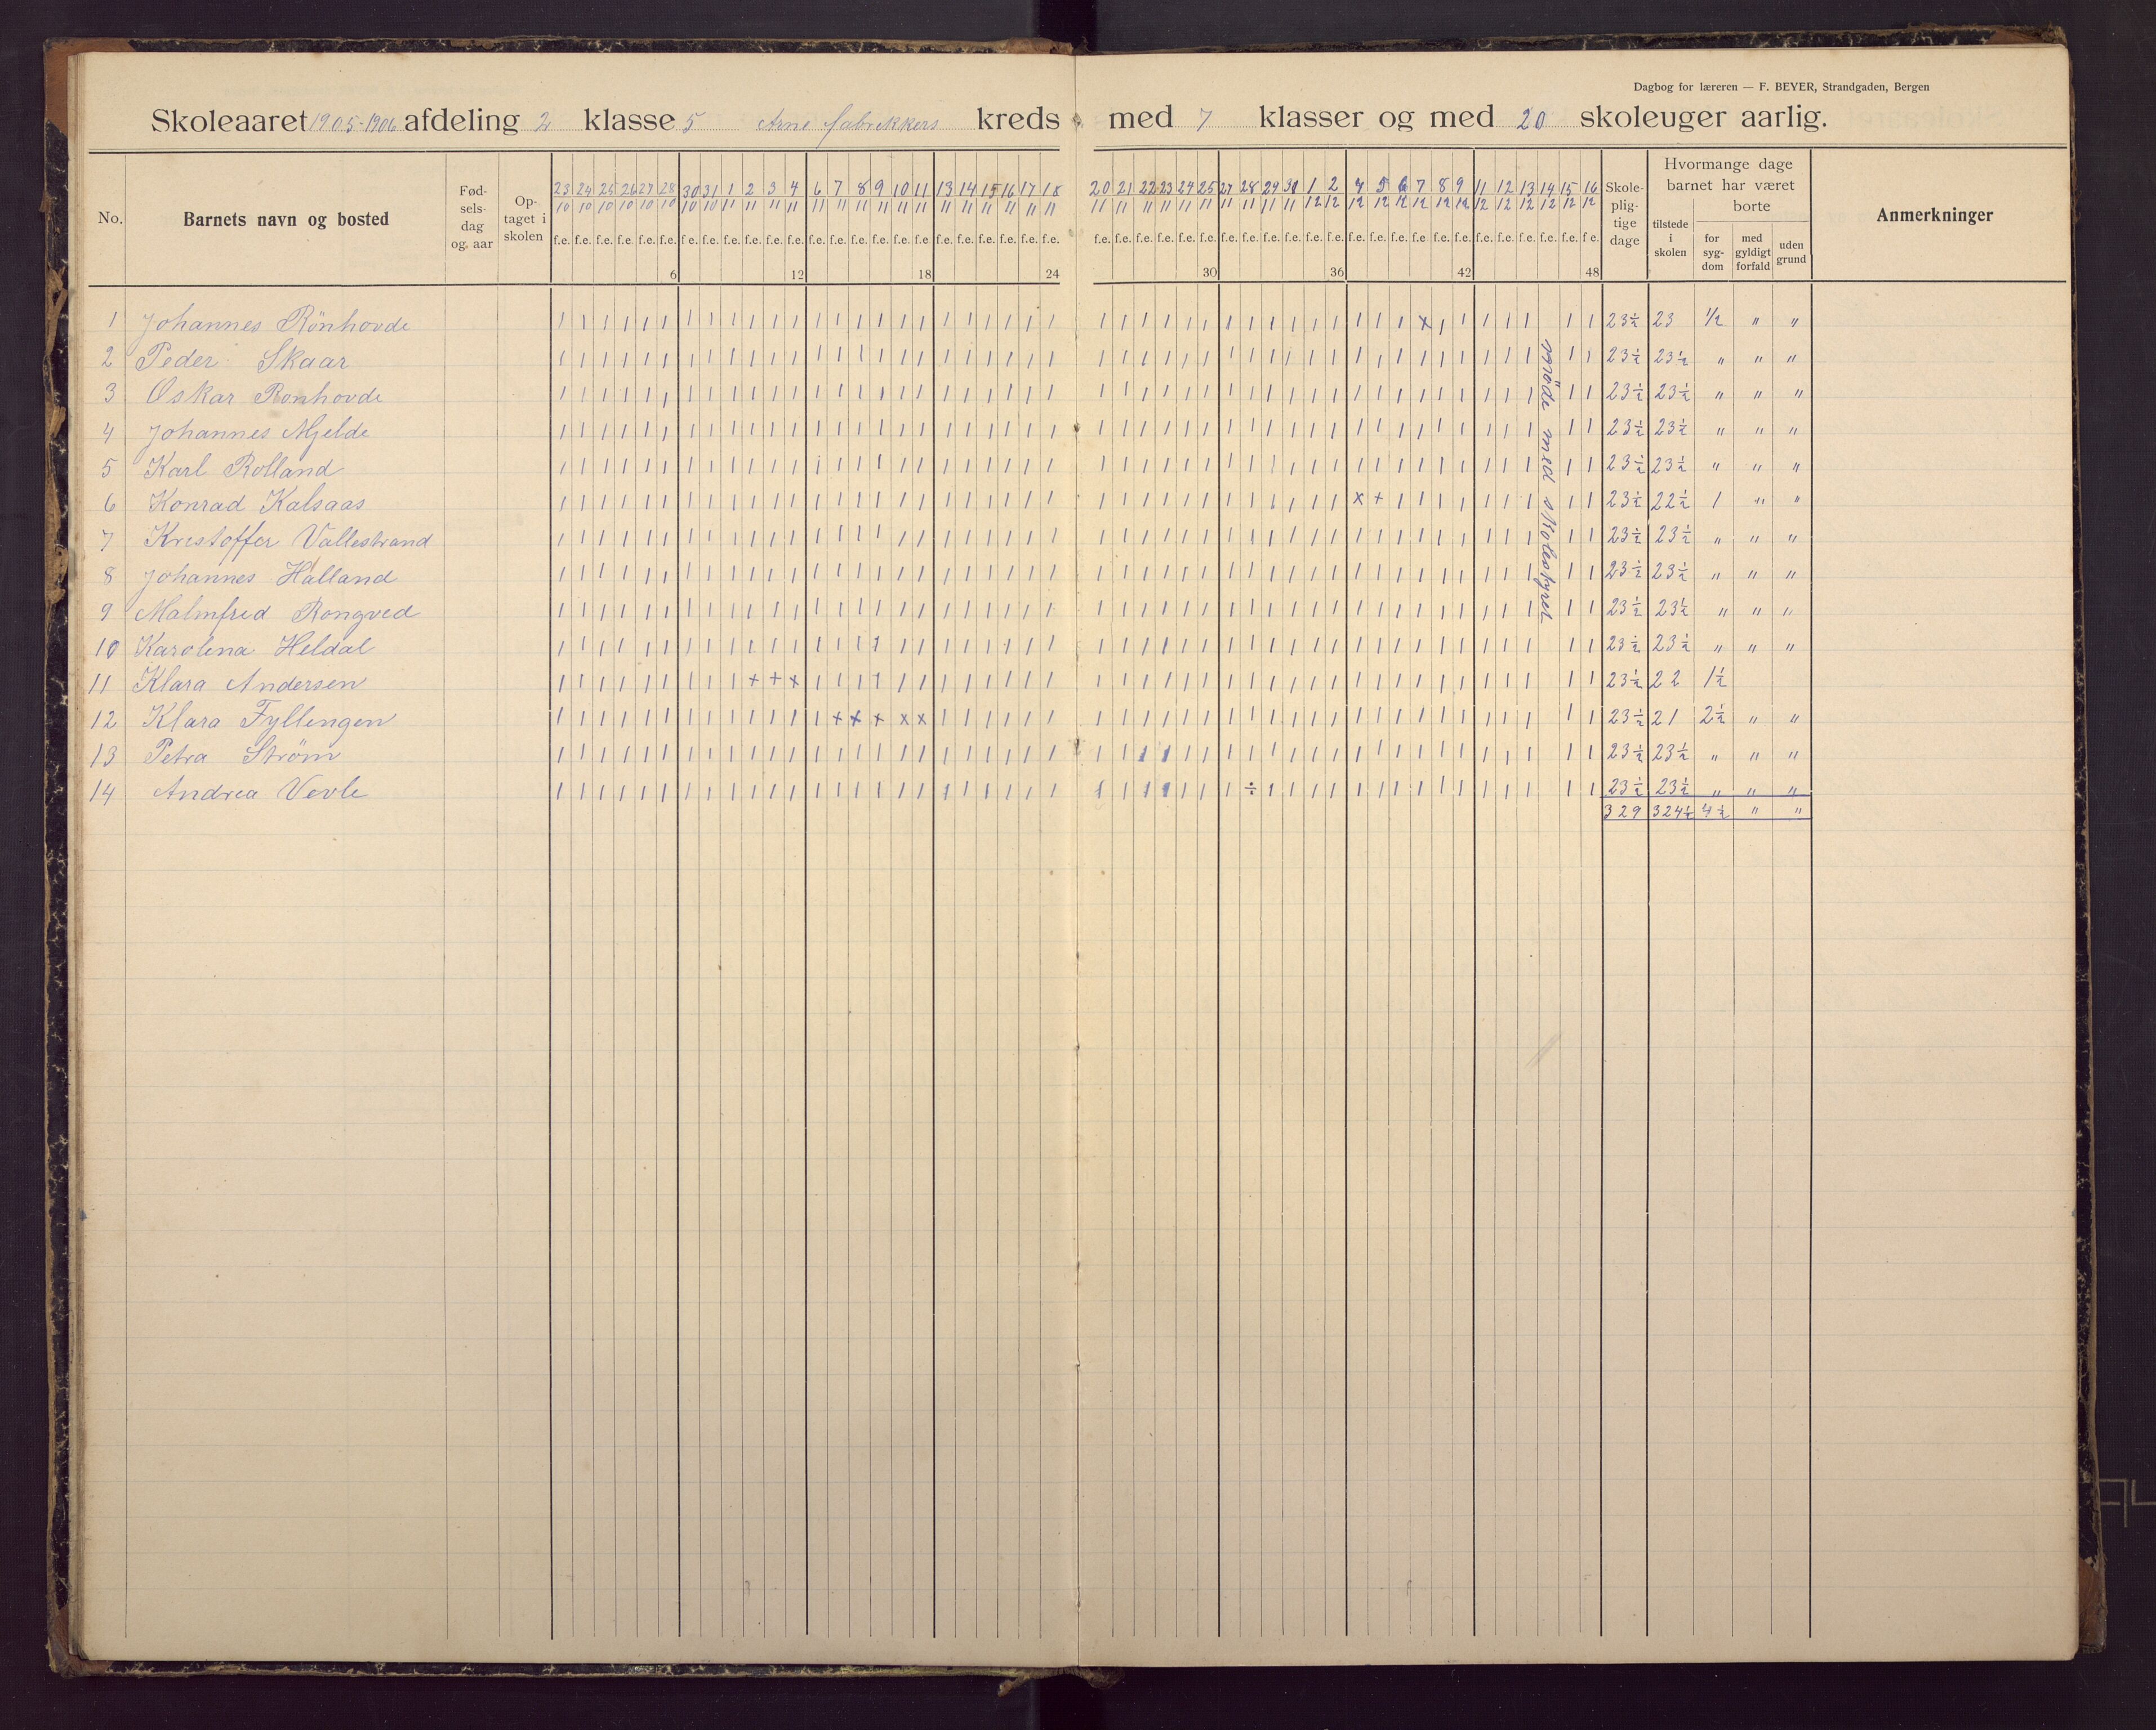 Dagbog for læreren — F. BEYER, Strandgaden, Bergen
Skoleaaret 1905-1906 afdeling 2 klasse 5 Arne fabrikkers kreds med 7 klasser og med 20 skoleuger aarlig.
No. Barnets navn og bosted Fød-selsdag og. aar Optaget i skolen Skolepligtige dage Hvormange dage barnet har været tilstede i skolen borte for sygdom med gyldigt forfald uden grund Anmerkninger
23/10 24/10 25/10 26/10 27/10 28/10 30/10 31/10 1/11 2/11 3/11 4/11 6/11 7/11 8/11 9/11 10/11 11/11 13/11 14/11 15/11 16/11 17/11 18/11 20/11 21/11 22/11 23/11 24/11 25/11 27/11 28/11 29/11 30/11 1/12 2/12 4/12 5/12 6/12 7/12 8/12 9/12 11/12 12/12 13/12 14/12 15/12 16/12
f.e. f.e. f.e. f.e. f.e. f.e. f.e. f.e. f.e. f.e. f.e. f.e. f.e. f.e. f.e. f.e. f.e. f.e. f.e. f.e. f.e. f.e. f.e. f.e. f.e. f.e. f.e. f.e. f.e. f.e. f.e. f.e. f.e. f.e. f.e. f.e. f.e. f.e. f.e. f.e. f.e. f.e. f.e. f.e. f.e. f.e. f.e. f e.
6 12 18 24 30 36 42 48
1 Johannes Rönhovde 23½ 23 ½ " "
2 Peder Skaar 23½ 23½ " " "
3 Oskar Ronhovde 23½ 23½ " " "
4 Johannes Mjelde 23½ 23½ " " "
5 Karl Rolland 23½ 23½ " " "
6 Konrad Kalsaas 23½ 22½ 1 " "
7 Kristoffer Vallestrand 23½ 23½ " " "
8 Johannes Halland 23½ 23½ " " "
9 Malmfred Rongved 23½ 23½ " " "
10 Karolina Heldal 23½ 23½ " " "
11 Klara Andersen 23½ 22 1½
12 Klara Fyllingen 23½ 21 2½ " "
13 Petra Strøm 23½ 23½ " " "
14 Andrea Vevle 23½ 23½ " " "
329 324½ 4½ " "
möde med skolestyret